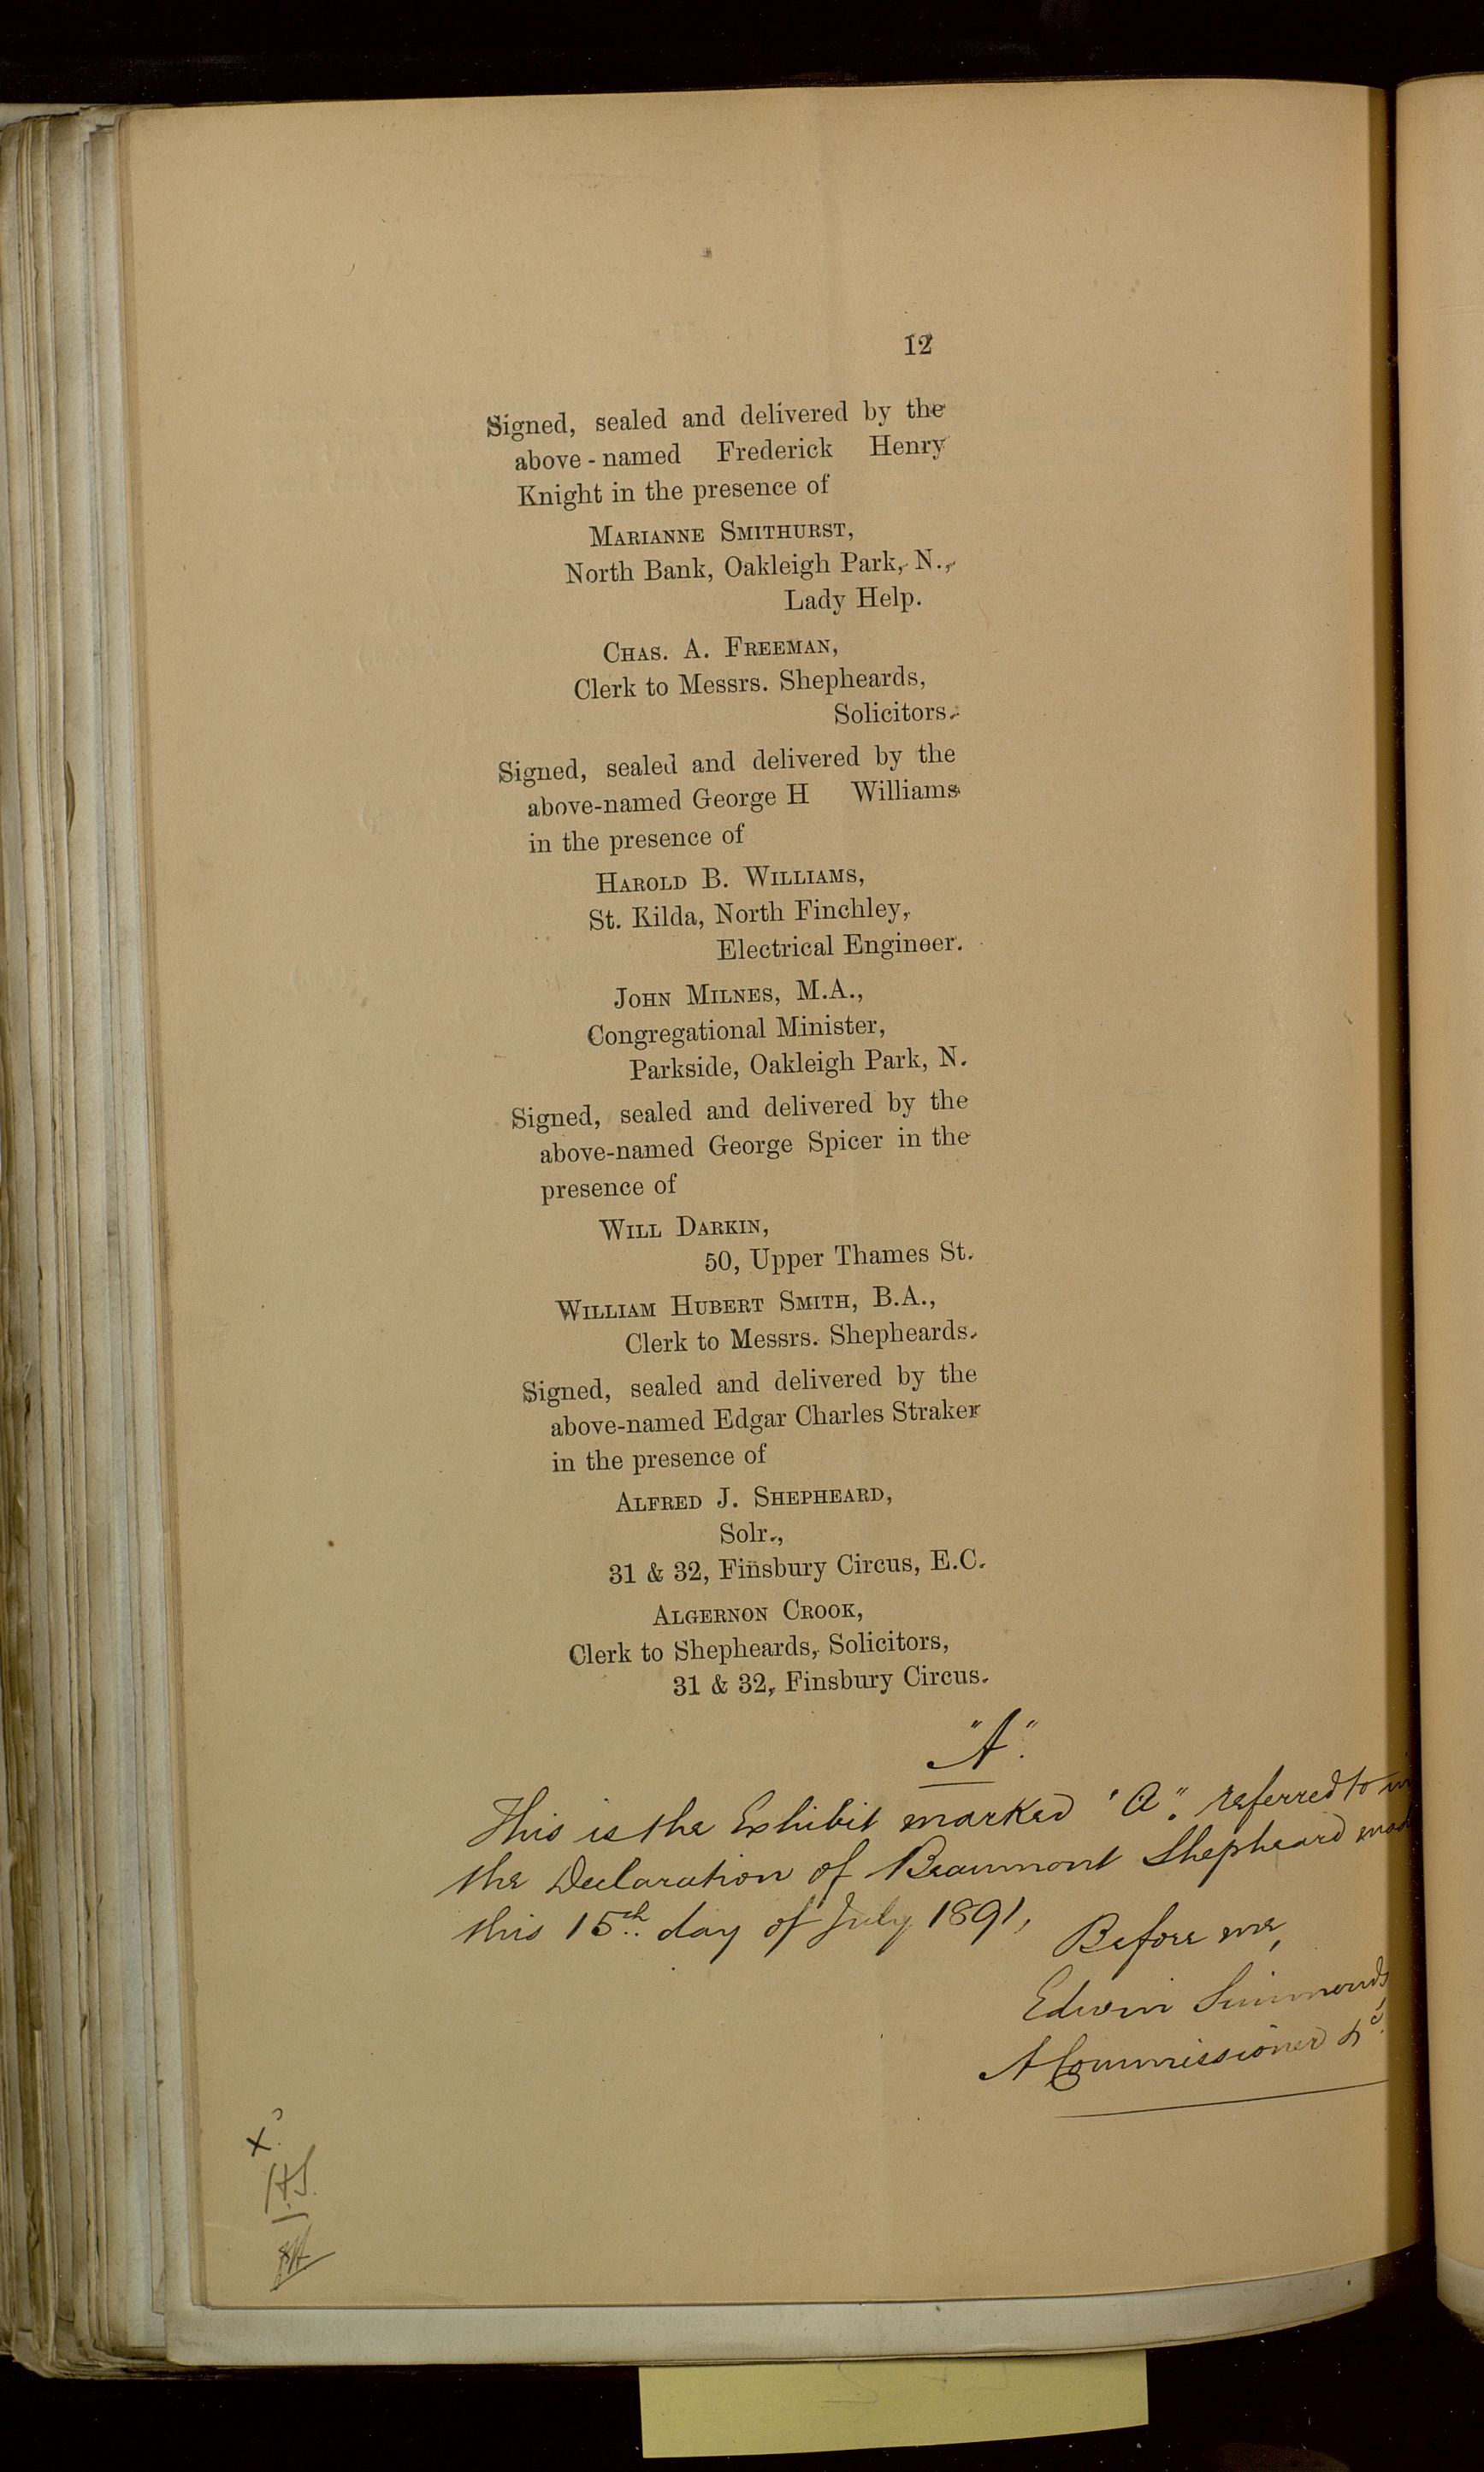 12
Signed, sealed and delivered by the
above-named Frederick Henry
Knight in the presence of
MARIANNE SMITHURST,
North Bank, Oakleigh Park, N.,
Lady Help.
CHAS. A. FREEMAN,
Clerk to Messrs. Shepheards,
Solicitors.
Signed, sealed and delivered by the
above-named George H Williams
in the presence of
HAROLD B. WILLIAMS,
St. Kilda, North Finchley,
Electrical Engineer.
JOHN MILNES, M.A.,
Congregational Minister,
Parkside, Oakleigh Park, N.
Signed, sealed and delivered by the
above-named George Spicer in the
presence of
WILL DARKIN,
50, Upper Thames St.
WILLIAM HUBERT SMITH, B.A.,
Clerk to Messrs. Shepheards.
Signed, sealed and delivered by the
above-named Edgar Charles Straker
in the presence of
ALFRED J. SHEPHEARD,
Solr.,
31 & 32, Finsbury Circus, E.C.
ALGERNON CROOK,
Clerk to Shepheards, Solicitors,
31 & 32, Finsbury Circus.
"A".
This is the Exhibit marked "A". referred to in
the Declaration of Beaumont Shepheard
this 15th day of July 1891,
Before me,
Edwin Simmonds,
A Commissioner &c.